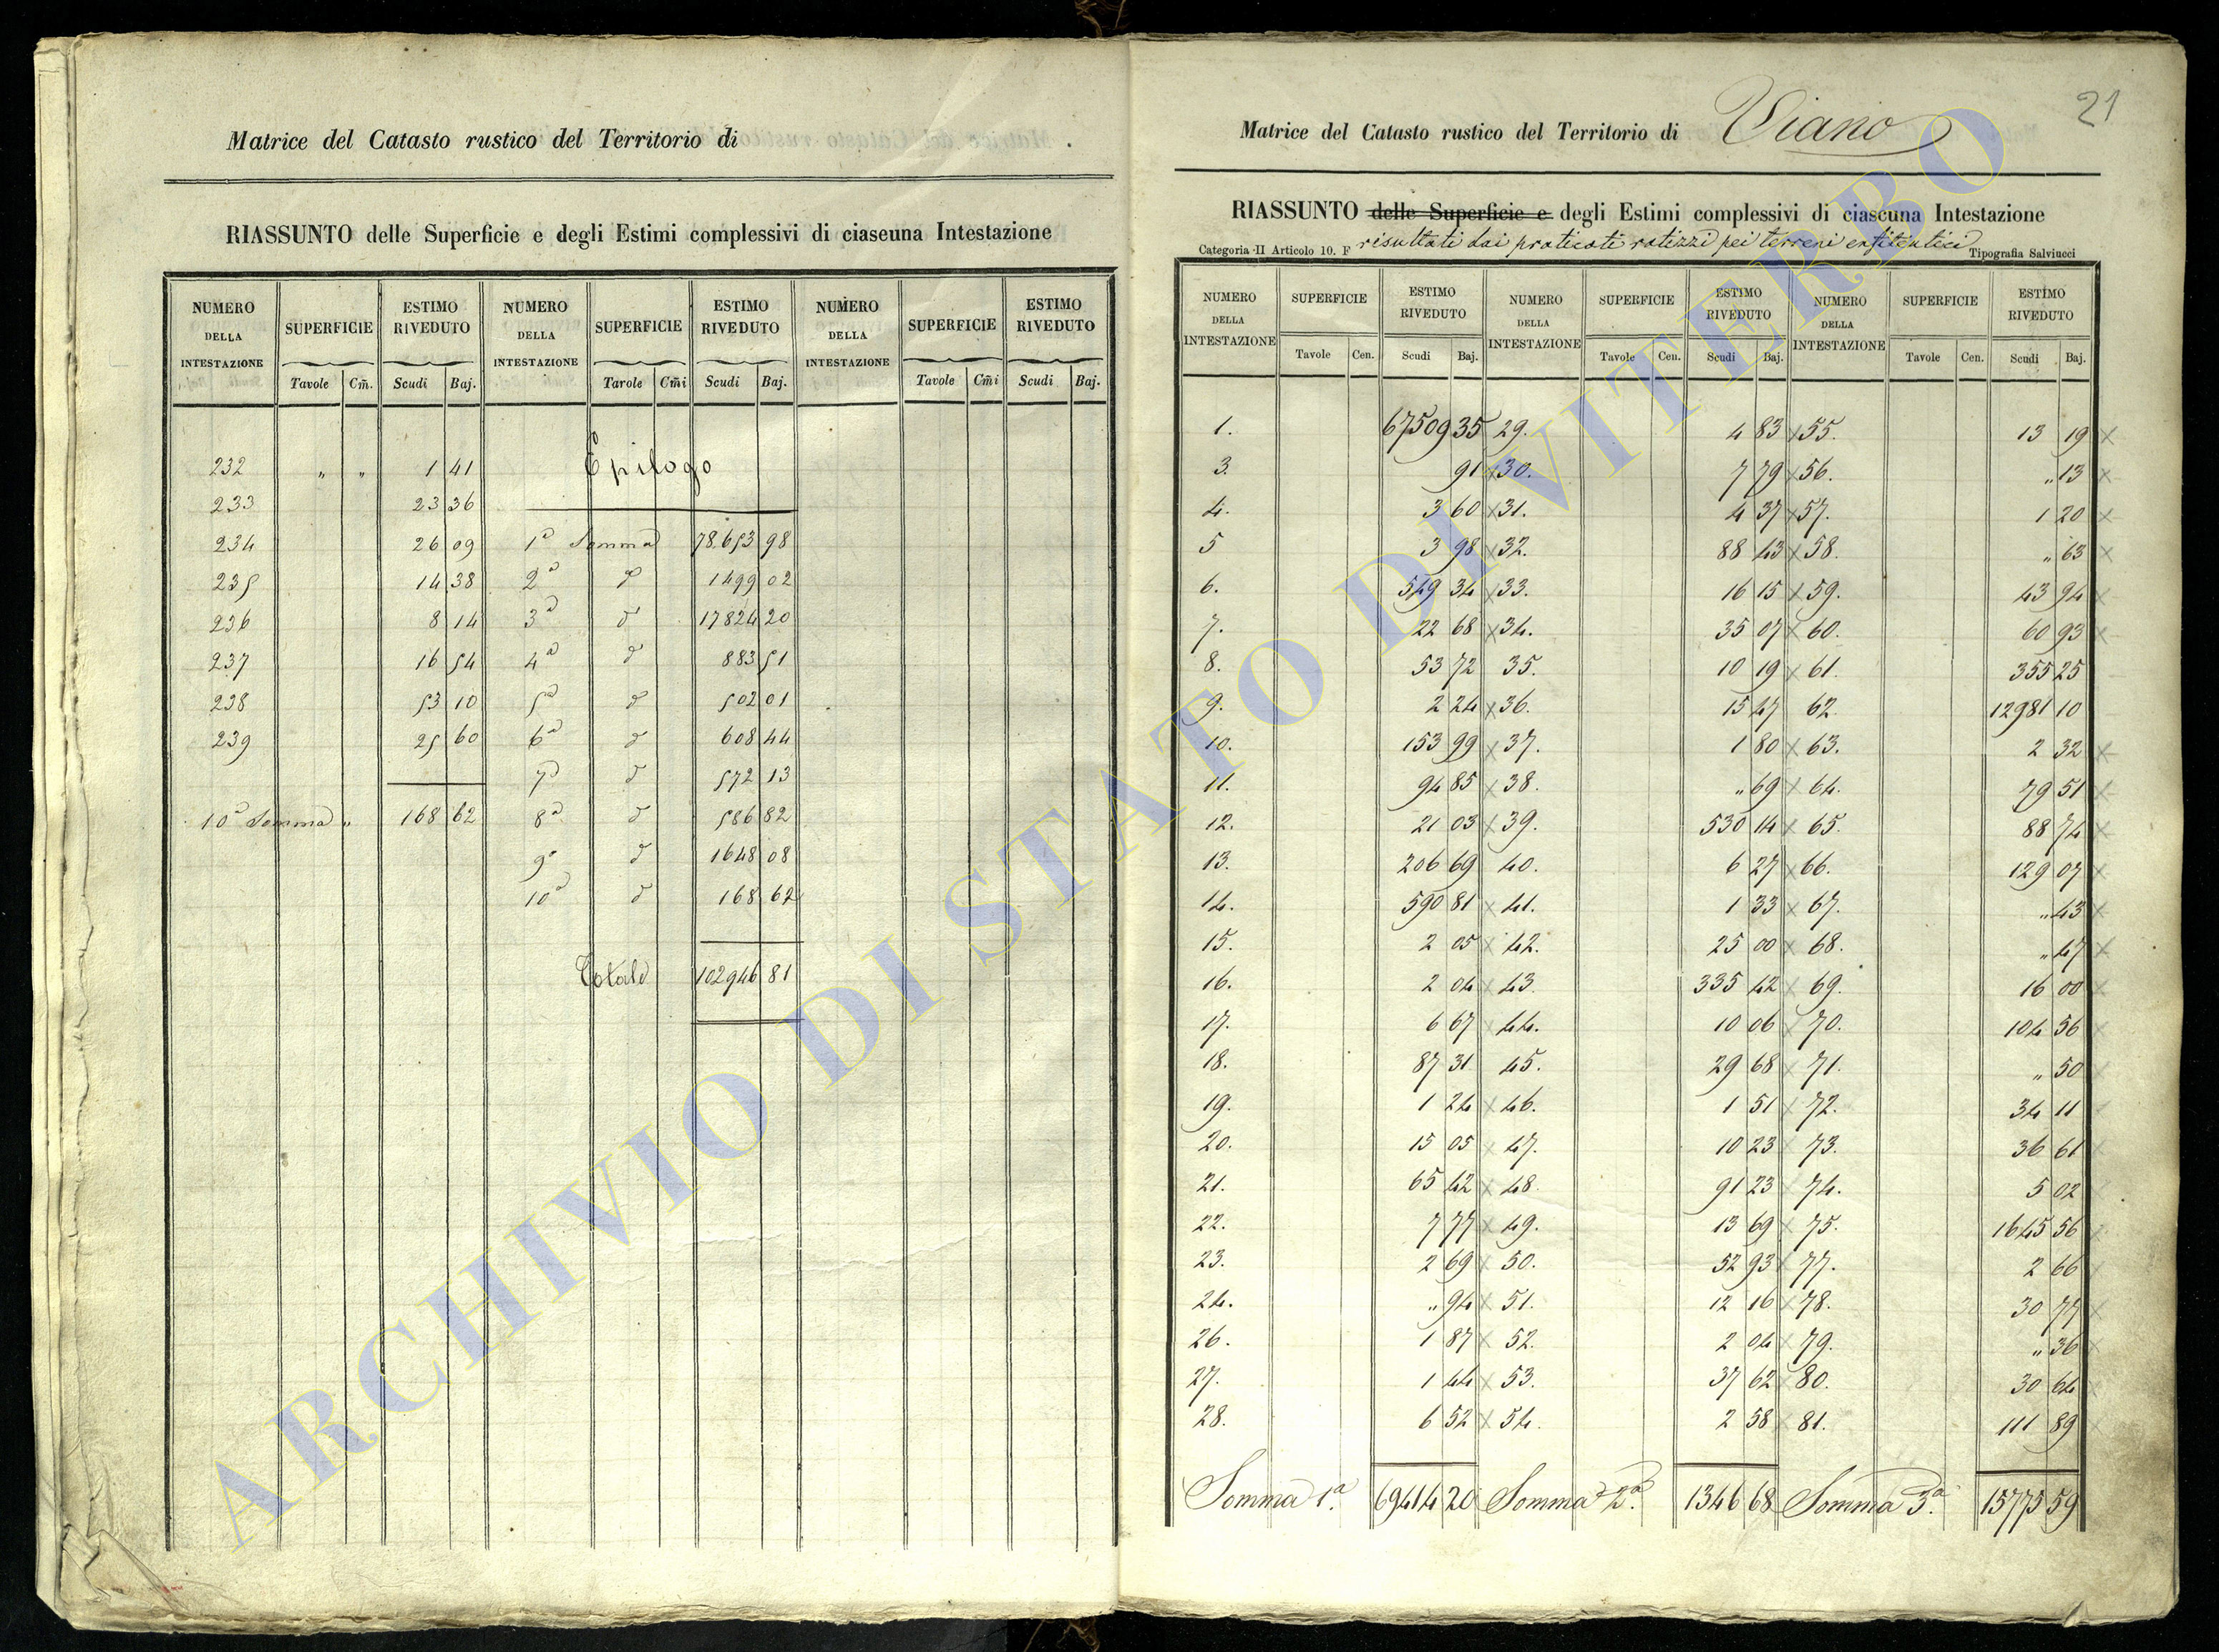 Matrice del Catasto rustico del Territorio di
RIASSUNTO delle Superficie e degli Estimi complessivi di ciascuna Intestazione
NUMERO DELLA INTESTAZIONE SUPERFICIE ESTIMO RIVEDUTO NUMERO DELLA INTESTAZIONE SUPERFICIE ESTIMO RIVEDUTO NUMERO DELLA INTESTAZIONE SUPERFICIE ESTIMO RIVEDUTO
Tavole Cm̃. Scudi Baj. Tavole Cm̃i Scudi Baj. Tavole Cm̃i Scudi Baj.
Epilogo
232 " " 1 41
233 23 36
234 26 09 1a Somma 78.653 98
235 14 38 2a d 1499 02
236 8 14 3a d 17824 20
237 16 54 4a d 883 51
238 53 10 5a d 502 01
239 25 60 6a d 608 44
7a d 572 13
10a Somma " 168 62 8a d 586 82
9a d 1648 08
10a d 168 62
Totale 102946 81
21
Matrice del Catasto rustico del Territorio di Viano
RIASSUNTO delle Superficie e degli Estimi complessivi di ciascuna Intestazione
Categoria II Articolo 10. F risultati dai praticati ratizzi pei terreni enfiteutici Tipografia Salviucci
NUMERO DELLA INTESTAZIONE SUPERFICIE ESTIMO RIVEDUTO NUMERO DELLA INTESTAZIONE SUPERFICIE ESTIMO RIVEDUTO NUMERO DELLA INTESTAZIONE SUPERFICIE ESTIMO RIVEDUTO
Tavole Cen. Scudi Baj. Tavole Cen. Scudi Baj. Tavole Cen. Scudi Baj.
1. 67509 35 29. 4 83 x 55. 13 19 x
3. 91 x 30. 7 79 x 56. " 13 x
4. 3 60 x 31. 4 37 x 57. 1 20 x
5 3 98 x 32. 88 43 x 58. " 63 x
6. 549 34 x 33. 16 15 x 59. 43 94 x
7. 22 68 x 34. 35 07 x 60. 60 93 x
8. 53 72 35. 10 19 x 61. 355 25
9. 2 24 x 36. 15 47 62 12981 10
10. 153 99 x 37. 1 80 x 63. 2 32 x
11. 94 85 x 38. " 69 x 64. 79 51 x
12. 21 03 x 39. 530 14 x 65. 88 74 x
13. 206 69 40. 6 27 x 66. 129 07 x
14. 590 81 x 41. 1 33 x 67. " 43 x
15. 2 05 x 42. 25 00 x 68. " 47 x
16. 2 04 x 43. 335 42 x 69. 16 00 x
17. 6 67 x 44. 10 06 x 70. 104 56 x
18. 87 31 45. 29 68 x 71. " 50 x
19. 1 24 x 46. 1 51 x 72. 34 11
20. 15 05 x 47. 10 23 x 73. 36 61
21. 65 42 x 48. 91 23 x 74. 5 02
22. 7 77 x 49. 13 69 x 75. 1645 56
23. 2 69 x 50. 52 93 x 77. 2 66
24. " 94 x 51. 12 16 x 78. 30 77 x
26. 1 87 x 52. 2 04 x 79. " 36
27. 1 44 x 53. 37 62 x 80. 30 64 x
28. 6 52 x 54. 2 58 x 81. 111 89
Somma 1a. 69414 20 Somma 2a. 1346 68 Somma 3a. 15775 59
ARCHIVIO DI STATO DI VITERBO